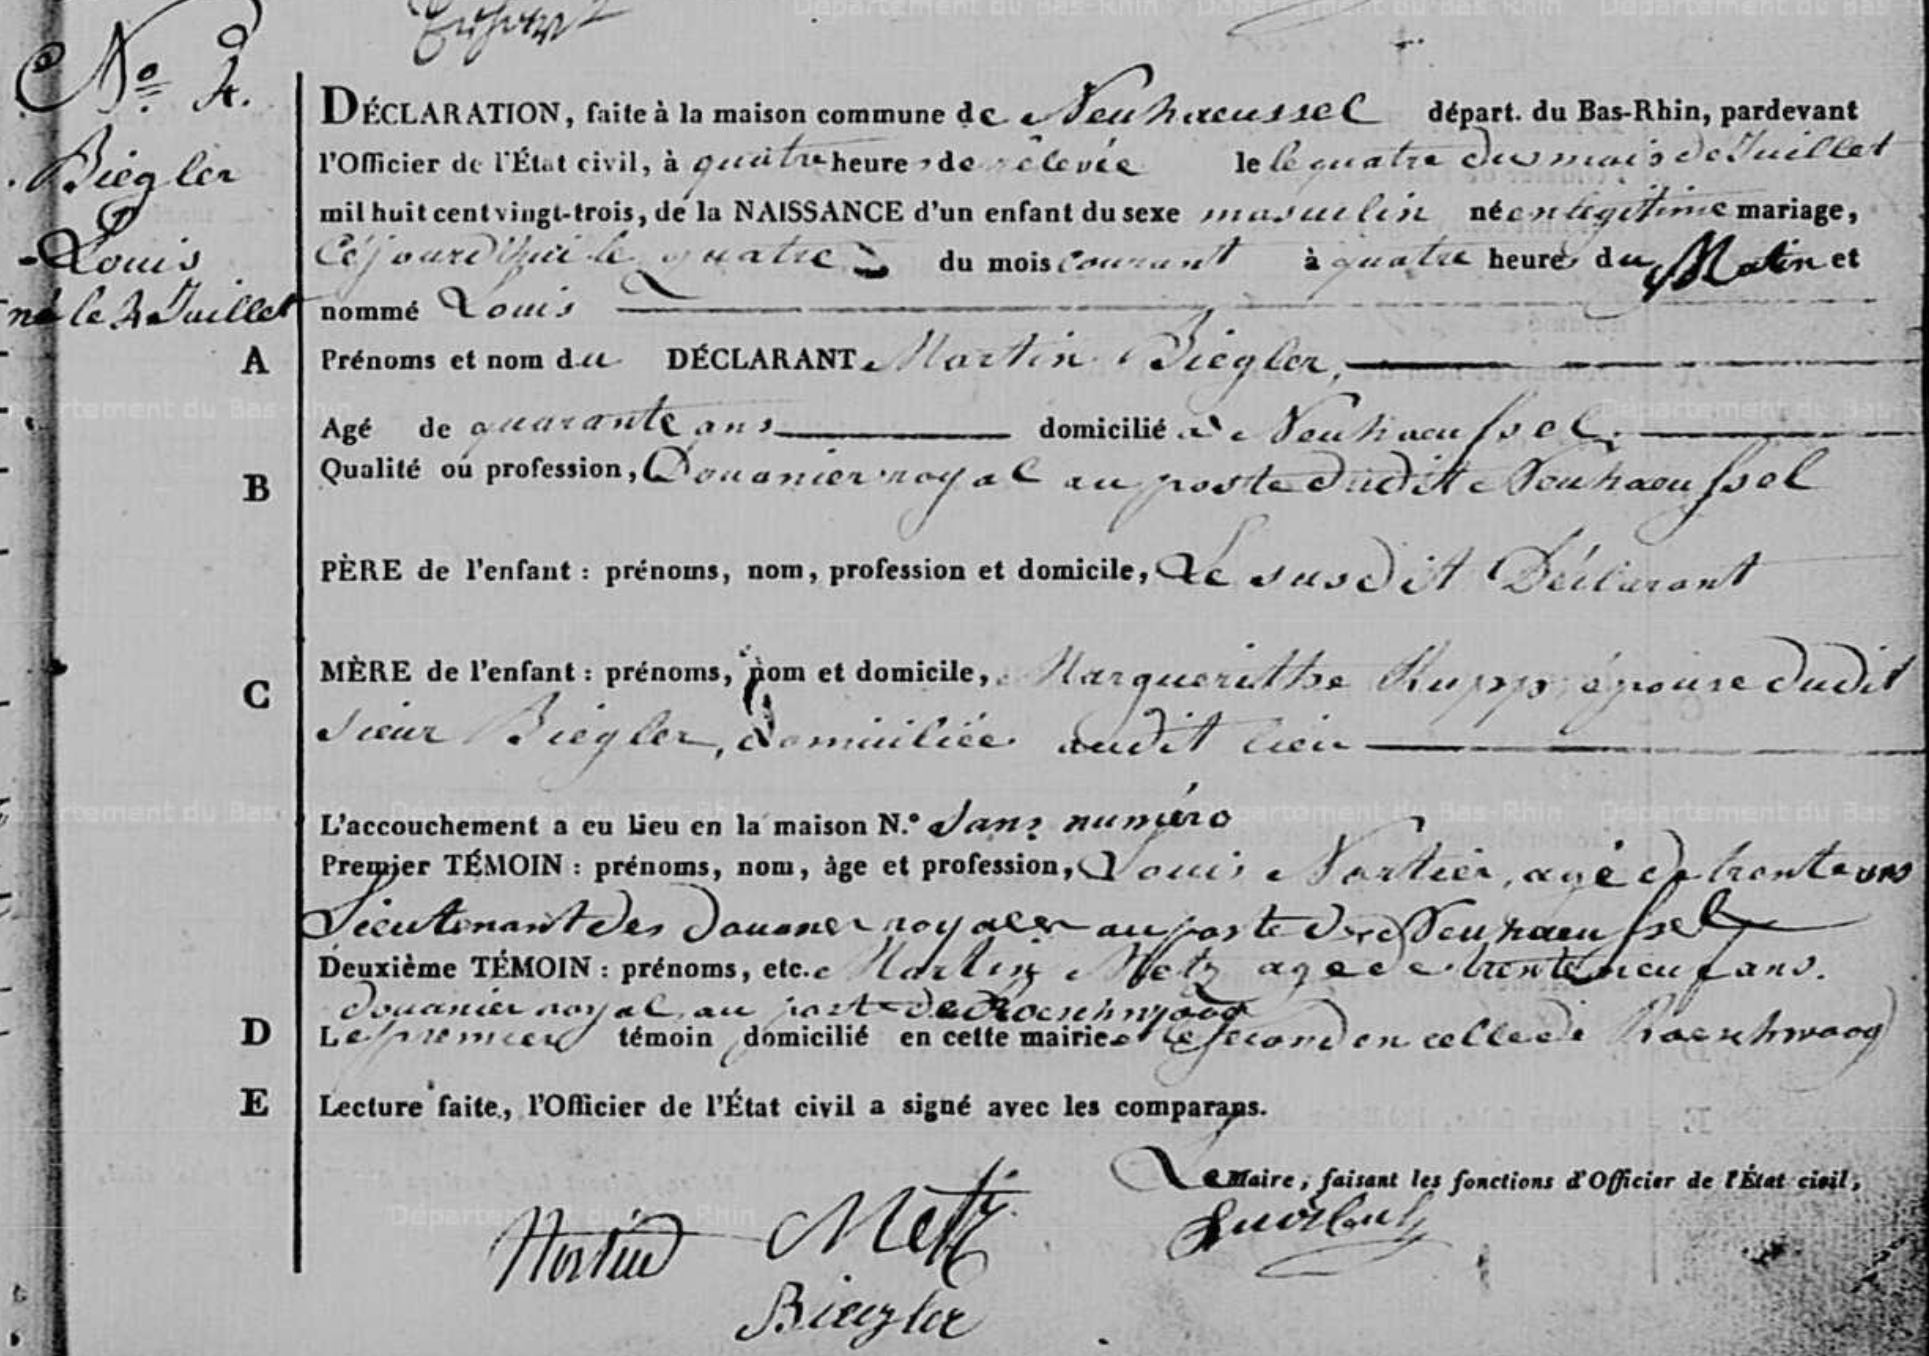 No 4.
Biegler
Louis
né le 4 Juillet
DÉCLARATION, faite à la maison commune de Neuhaeussel départ. du Bas-Rhin, pardevant
l'Officier de l'État civil, à quatre heures de rélevée le le quatre du mois de Juillet
mil huit cent vingt-trois, de la NAISSANCE d'un enfant du sexe masculin né en légitime mariage,
Céjourd'hui le quatre du mois courant à quatre heures du Matin et
nommé Louis
A Prénoms et nom du DÉCLARANT Martin Biegler,
Agé de quarante ans domicilié à Neuhaeussel.
B Qualité ou profession, Douanier royal au poste dudit Neuhaeussel
PÈRE de l'enfant : prénoms, nom, profession et domicile, Le susdit Déclarant
C MÈRE de l'enfant : prénoms, nom et domicile, Marguerithe Rupp épouse dudit
sieur Biegler, domiciliée audit lieu
L'accouchement a eu lieu en la maison N.° sans numéro
Premier TÉMOIN : prénoms, nom, âge et profession, Louis Nortier, agé de trente ans
Lieutenant des Douanes royales au poste de Neuhaeussel
Deuxième TÉMOIN : prénoms, etc. Martin Metz age de trente neuf ans.
douanier royal au post de Roeschwoog
D Le premier témoin domicilié en cette mairie et le second en celle de Roeschwoog
E Lecture faite, l'Officier de l'État civil a signé avec les comparans.
Le Maire, faisant les fonctions d'Officier de l'État civil,
Metz
Biegler
Département du Bas-Rhin